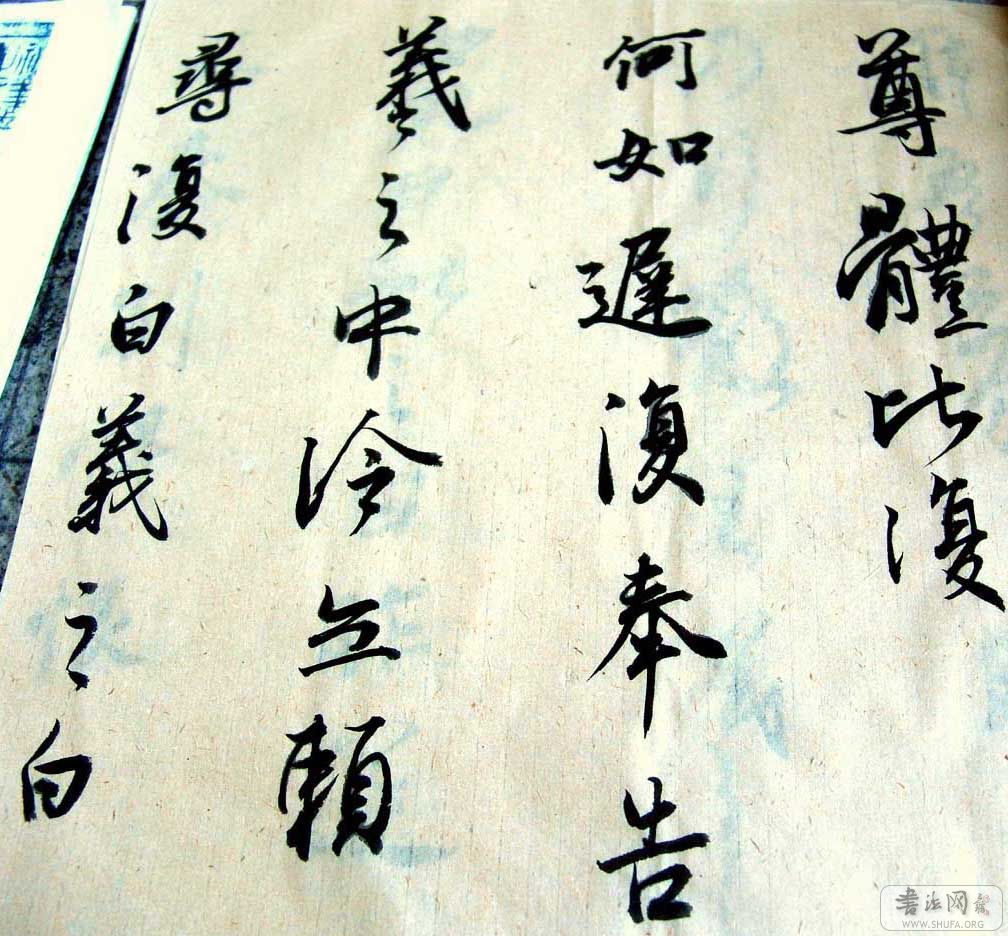 尊體比復
何如遲復奉告
羲之中冷无賴
尋復白羲之白
書法网
WWW.SHUFA.ORG